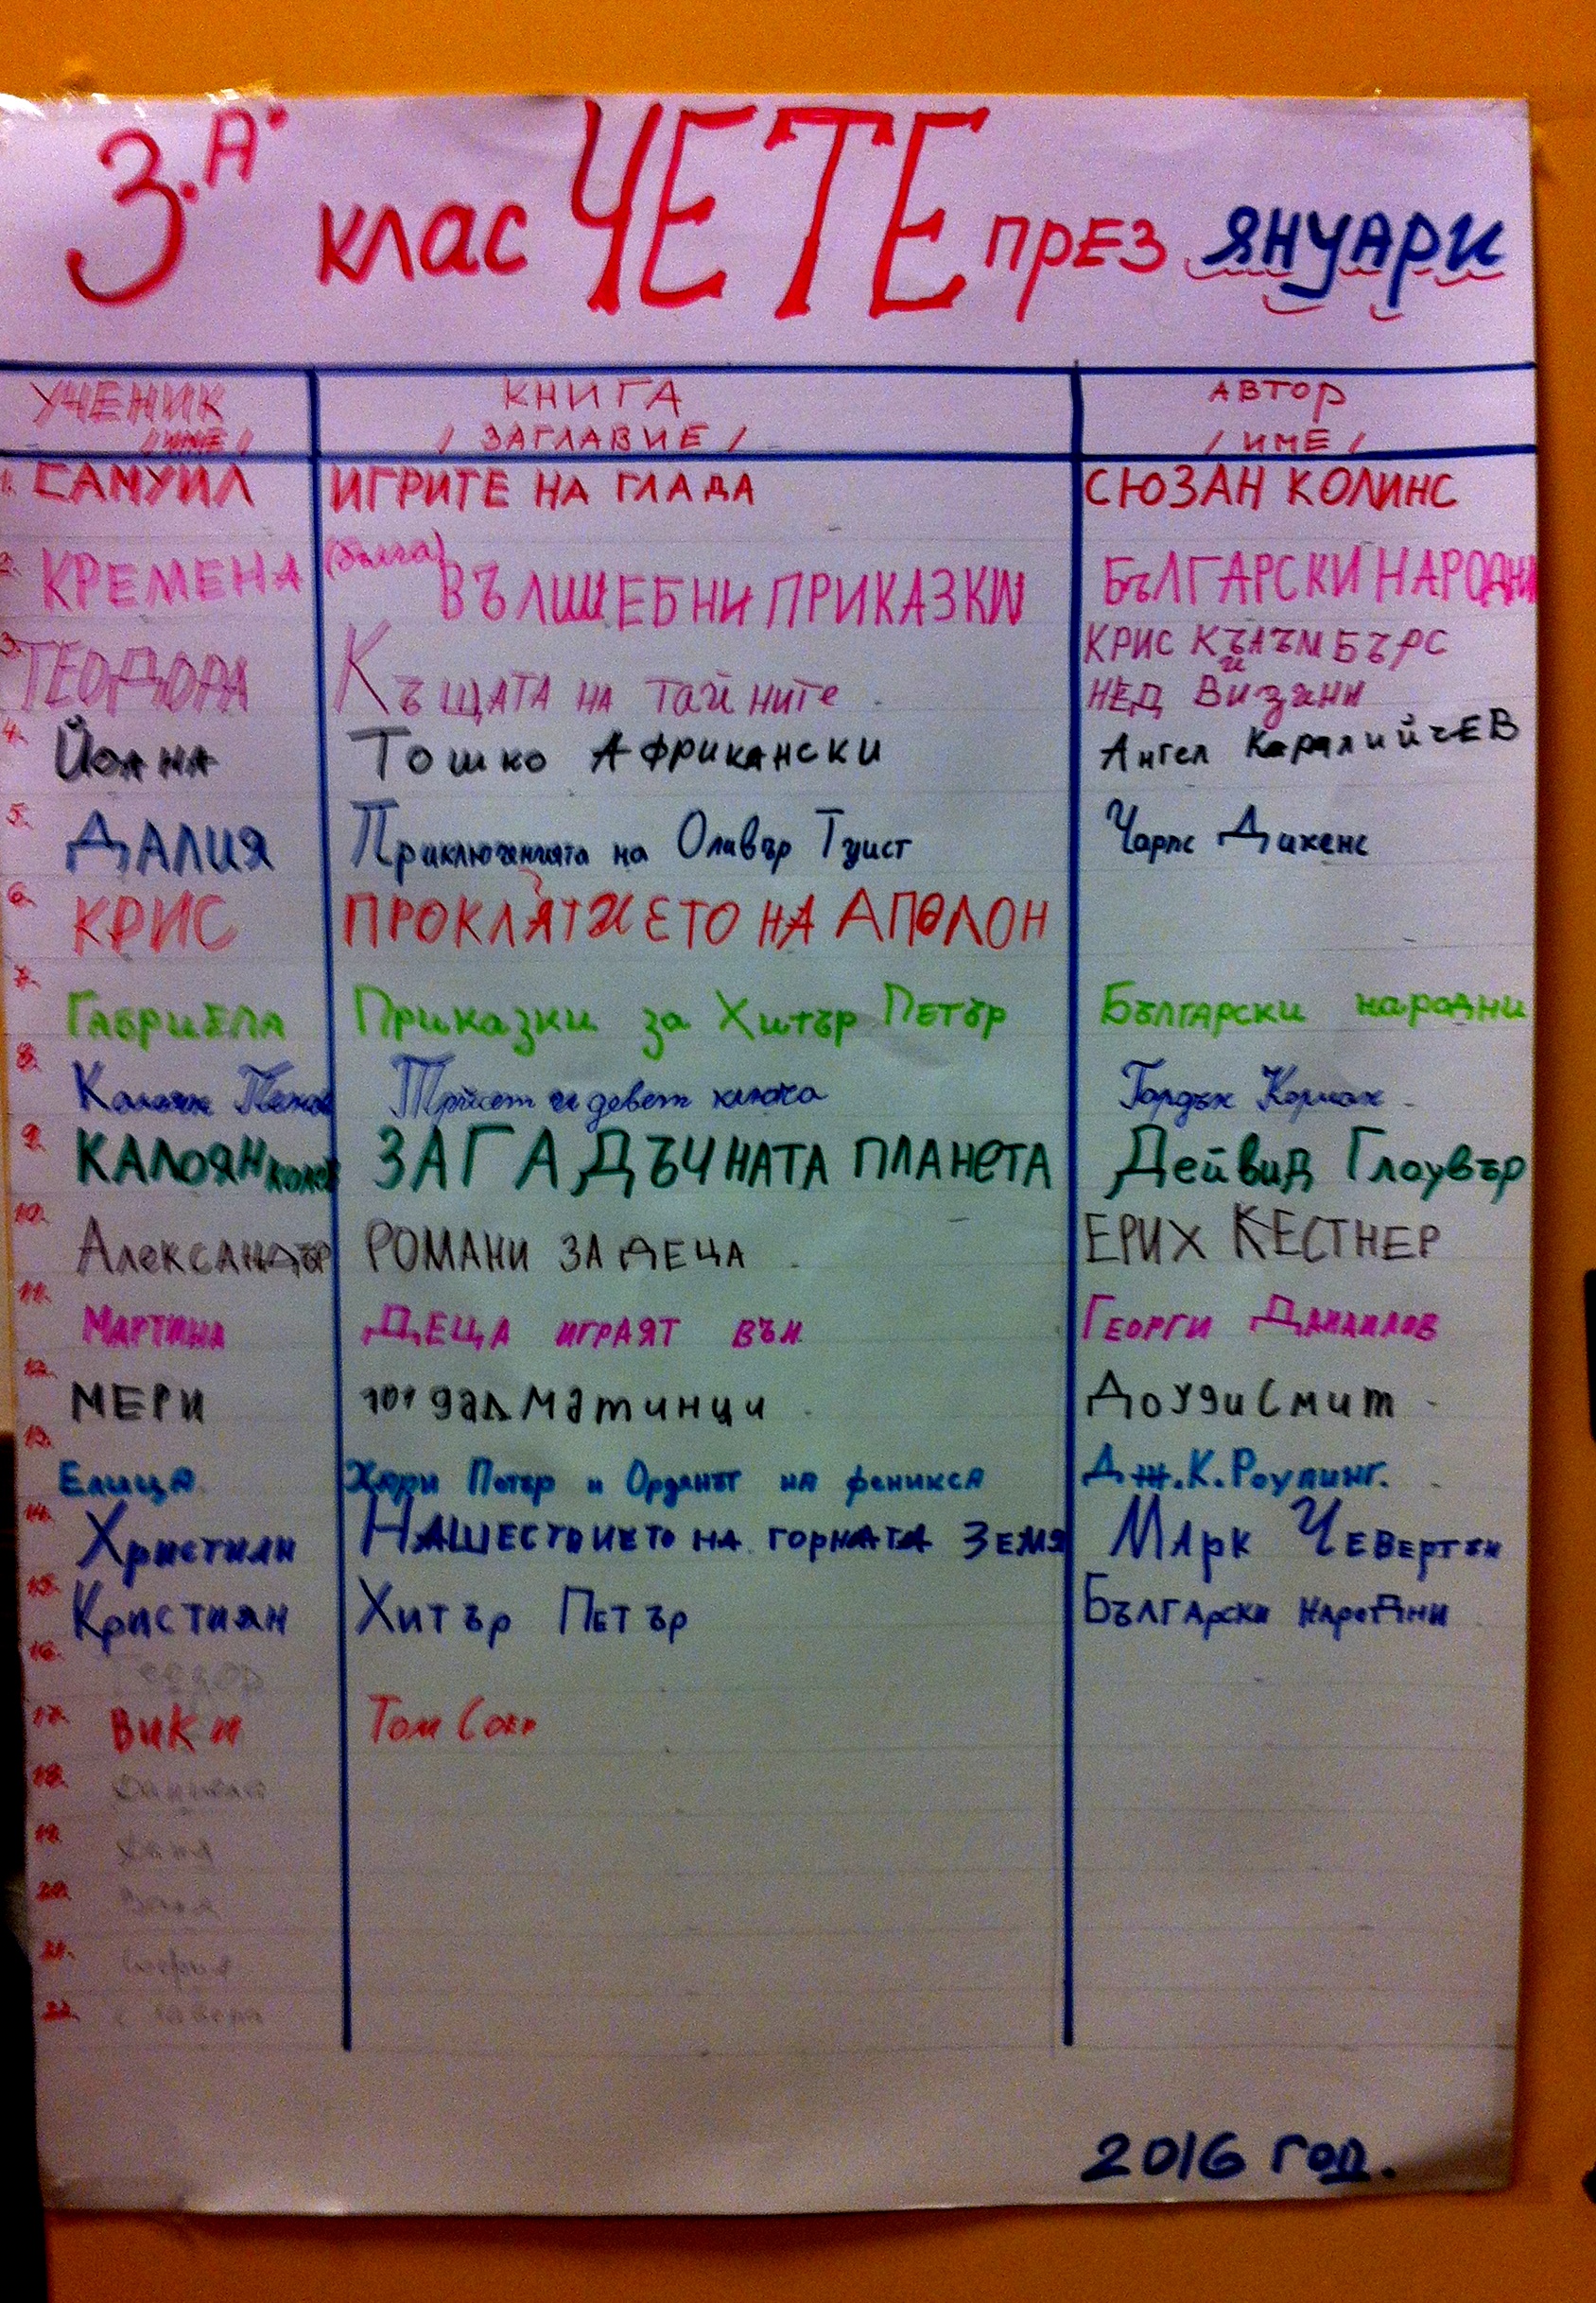 3. А клас ЧЕТЕ през януари
УЧЕНИК КНИГА АВТОР
/ИМЕ/ /ЗАГЛАВИЕ/ /ИМЕ/
1. САМУИЛ ИГРИТЕ НА ГЛАДА СЮЗАН КОЛИНС
2. КРЕМЕНА ВЪЛШЕБНИ ПРИКАЗКИ БЪЛГАРСКИ НАРОДНИ
3. ТЕОДОРА КЪЩАТА НА ТАЙНИТЕ КРИС КЪЛЪМБЪРС
и
НЕД ВИЗИНИ
4. Йоана Тошко Африкански Ангел Каралийчев
5. ДАЛИЯ Приключенията на Оливър Туист Чарлс Дикенс
6. КРИС ПРОКЛЯТИЕТО НА АПОЛОН
7. Габриела Приказки за Хитър Петър Български народни
8. Калоян Тридесет и девет ключа Гордън Корман
9. КАЛОЯН ЗАГАДЪЧНАТА ПЛАНЕТА Дейвид Глоувър
10. Александър РОМАНИ ЗА ДЕЦА ЕРИХ КЕСТНЕР
11. Мартина ДЕЦА ИГРАЯТ ВЪН Георги Данаилов
12. МЕРИ 101 далматинци Доуди Смит
13. Елица Хари Потър и Орденът на феникса Дж.К.Роулинг.
14. Християн НАШЕСТВИЕТО НА ГОРНАТА ЗЕМЯ Марк Чевертън
15. Кристиян Хитър Петър Български народни
16. Теодор
17. Вики Том Сойер
18.
19.
20.
21. София
22.
2016 год.